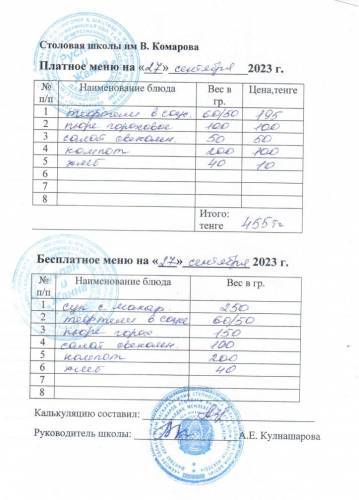 Столовая школы им В. Комарова
Платное меню на «27» сентября 2023 г.
№ п/п Наименование блюда Вес в гр. Цена,тенге
1 тефтели в соус. 60/50 195
2 пюре гороховое 100 100
3 салат свеколен. 50 50
4 компот 200 100
5 хлеб 40 10
6
7
8
Итого: тенге 455тг
Бесплатное меню на «27» сентября 2023 г.
№ п/п Наименование блюда Вес в гр.
1 суп с макар 250
2 тефтели в соусе 60/50
3 пюре горох 150
4 салат свеколен. 100
5 компот 200
6 хлеб 40
7
8
Калькуляцию составил:
Руководитель школы: А.Е. Кулнашарова